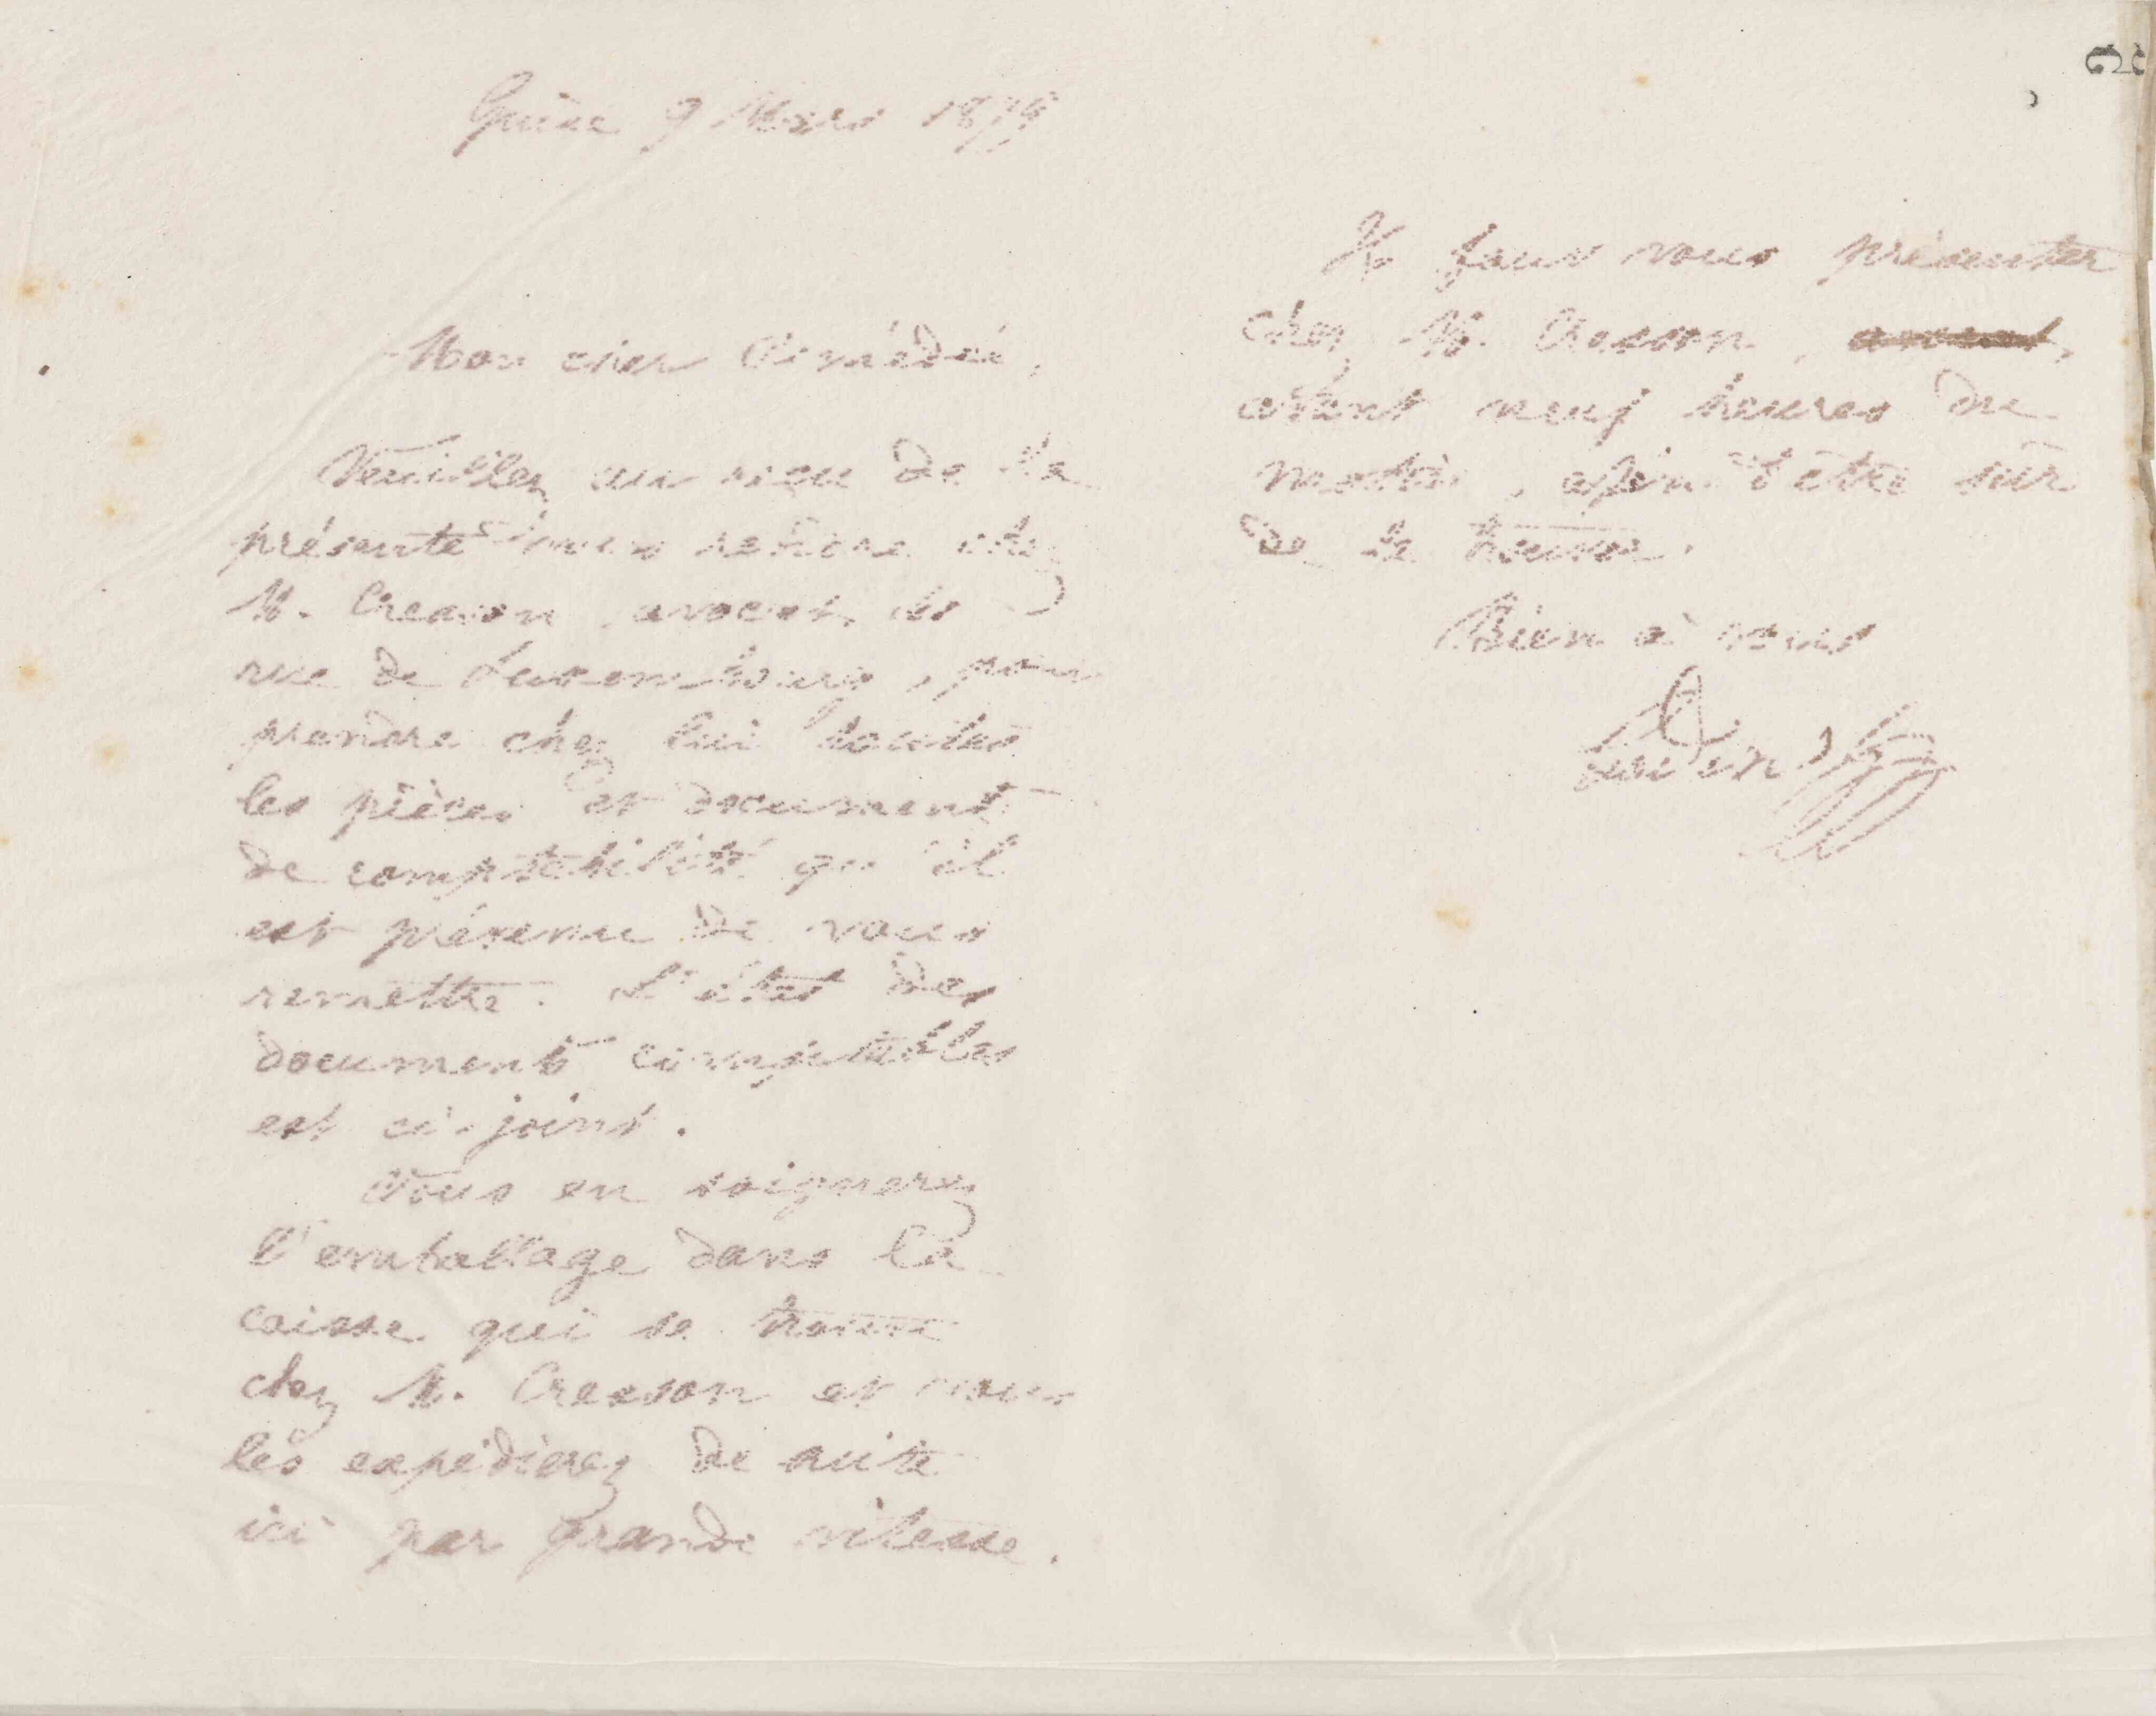 Guise 9 Mars 1879
Mon cher Amédée,
Veuillez au reçu de la
présente vous rendre chez
M. Cresson, avocat,
rue de Luxembourg, pour
prendre chez lui toutes
les pièces et documents
de comptabilité qu'il
est prévenu de vous
remettre. L'état des
documents comptables
est ci-joint.
Vous en soignerez
l'emballage dans la
caisse qui se trouve
chez M. Cresson et vous
les expédierez de suite
ici par grande vitesse.
Il faut vous présenter
chez M. Cresson, avocat,
avant neuf heures du
matin, afin d'être sûr
de le trouver.
Bien à vous